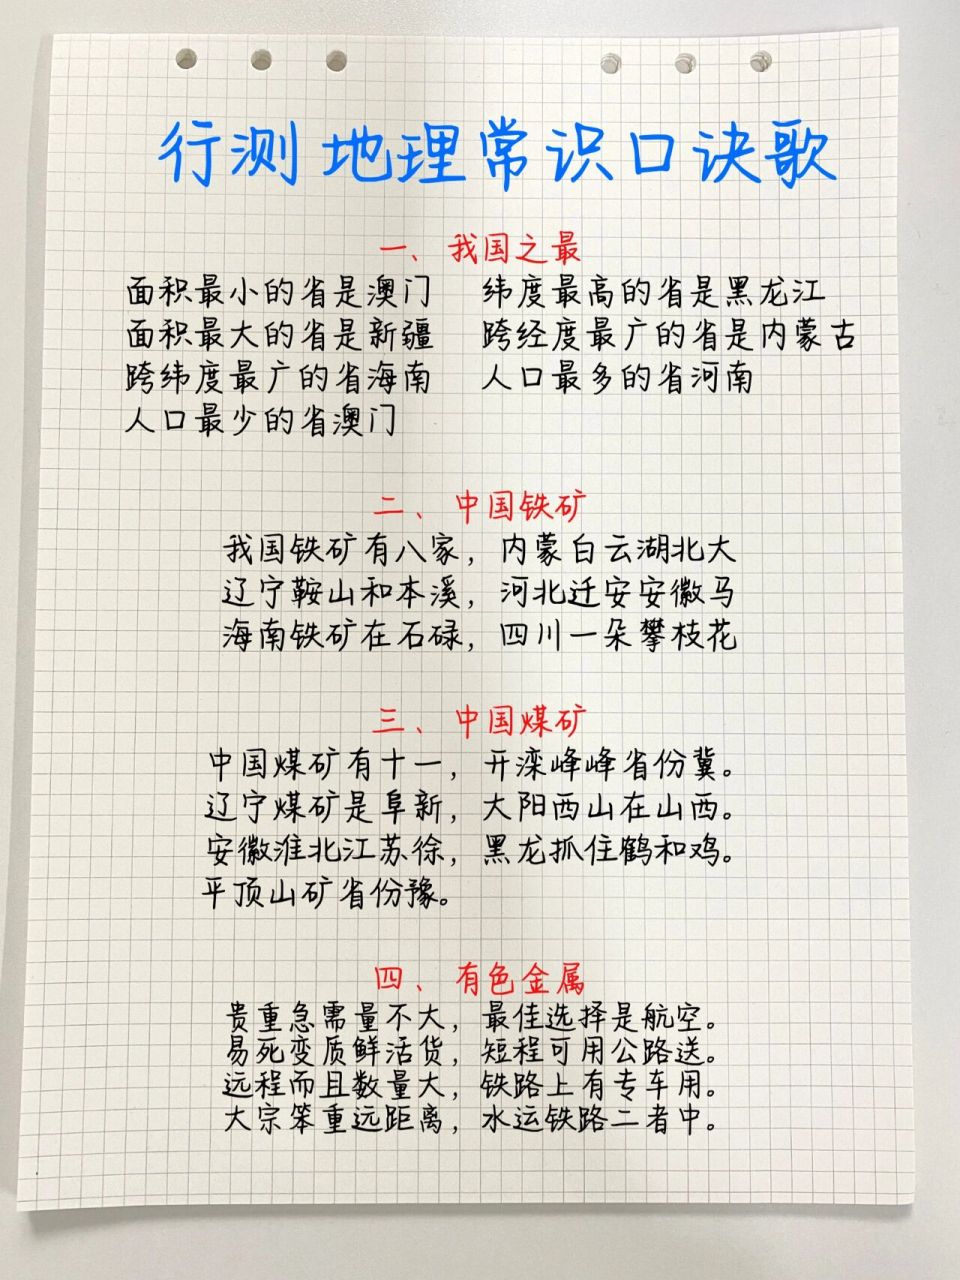 行测地理常识口诀歌
一、我国之最
面积最小的省是澳门 纬度最高的省是黑龙江
面积最大的省是新疆 跨经度最广的省是内蒙古
跨纬度最广的省海南 人口最多的省河南
人口最少的省澳门
二、中国铁矿
我国铁矿有八家，内蒙白云湖北大
辽宁鞍山和本溪，河北迁安安徽马
海南铁矿在石碌，四川一朵攀枝花
三、中国煤矿
中国煤矿有十一，开滦峰峰省份冀。
辽宁煤矿是阜新，大阳西山在山西。
安徽淮北江苏徐，黑龙抓住鹤和鸡。
平顶山矿省份豫。
四、有色金属
贵重急需量不大，最佳选择是航空。
易死变质鲜活货，短程可用公路送。
远程而且数量大，铁路上有专车用。
大宗笨重远距离，水运铁路二者中。